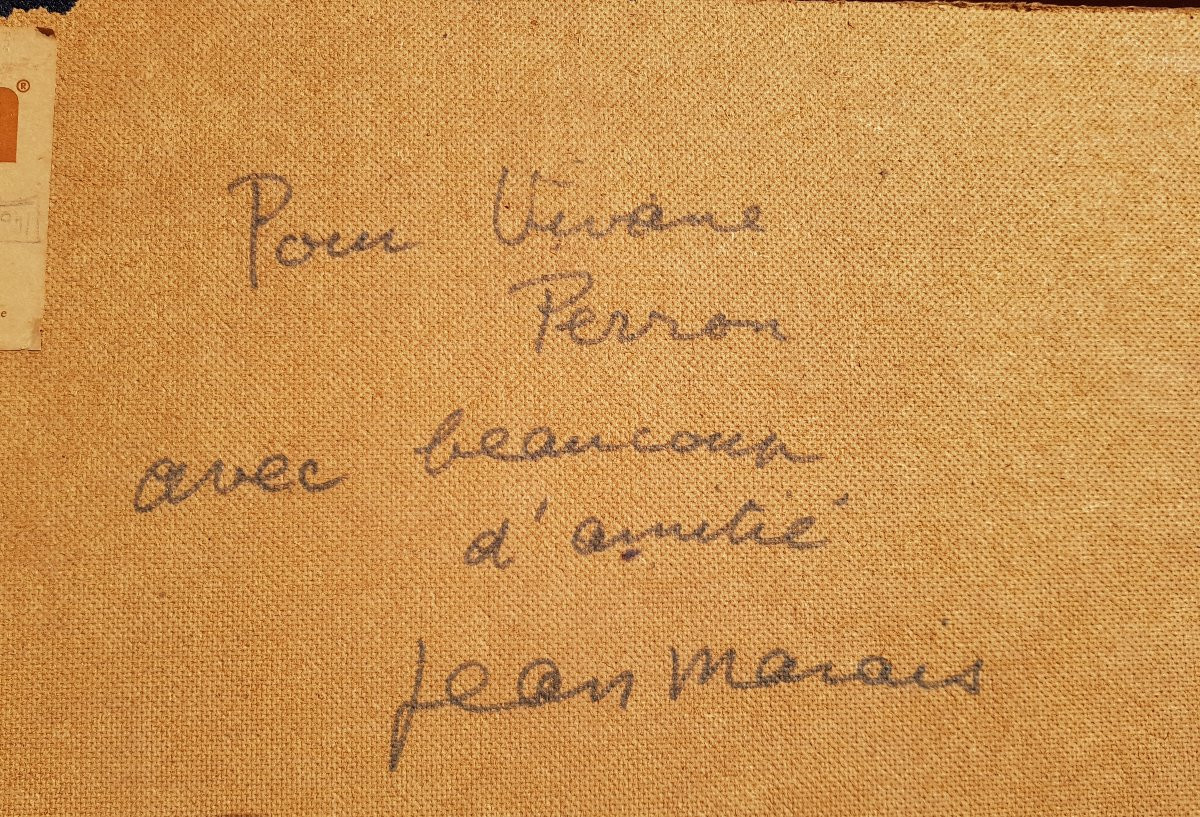 ®
Pour Viviane
Perron
avec beaucoup
d'amitié
Jean Marais